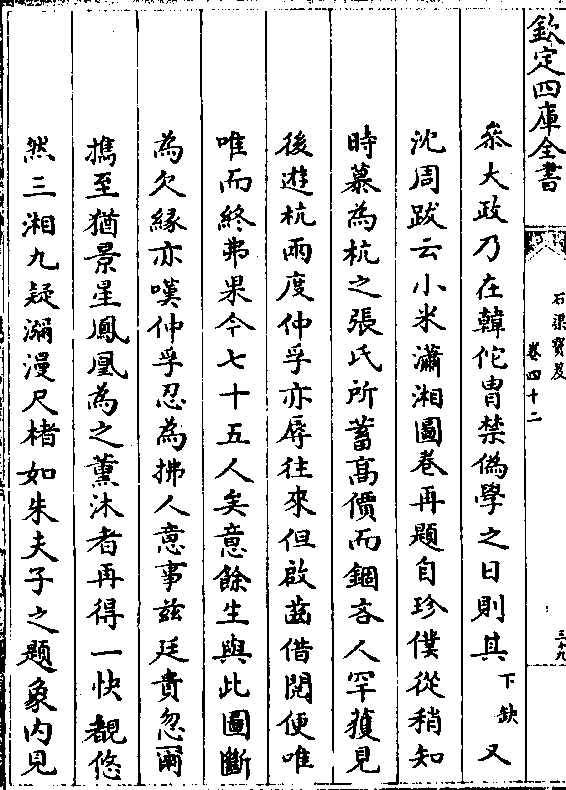 欽定四庫全書
石渠寶笈
卷四十二
三十九
叅大政乃在韓侂胄禁偽學之日則其下缺又
沈周跋云小米瀟湘圖卷再題自珍僕從稍知
時慕為杭之張氏所蓄髙價而錮吝人罕獲見
後遊杭兩度仲孚亦辱往來但啟齒借閱便唯
唯而終弗果今七十五人矣意餘生與此圖斷
為欠緣亦嘆仲孚忍為拂人意事兹廷貴忽爾
擕至猶景星鳳凰為之薰沐者再得一快覩悠
然三湘九疑瀰漫尺楮如朱夫子之題象内見